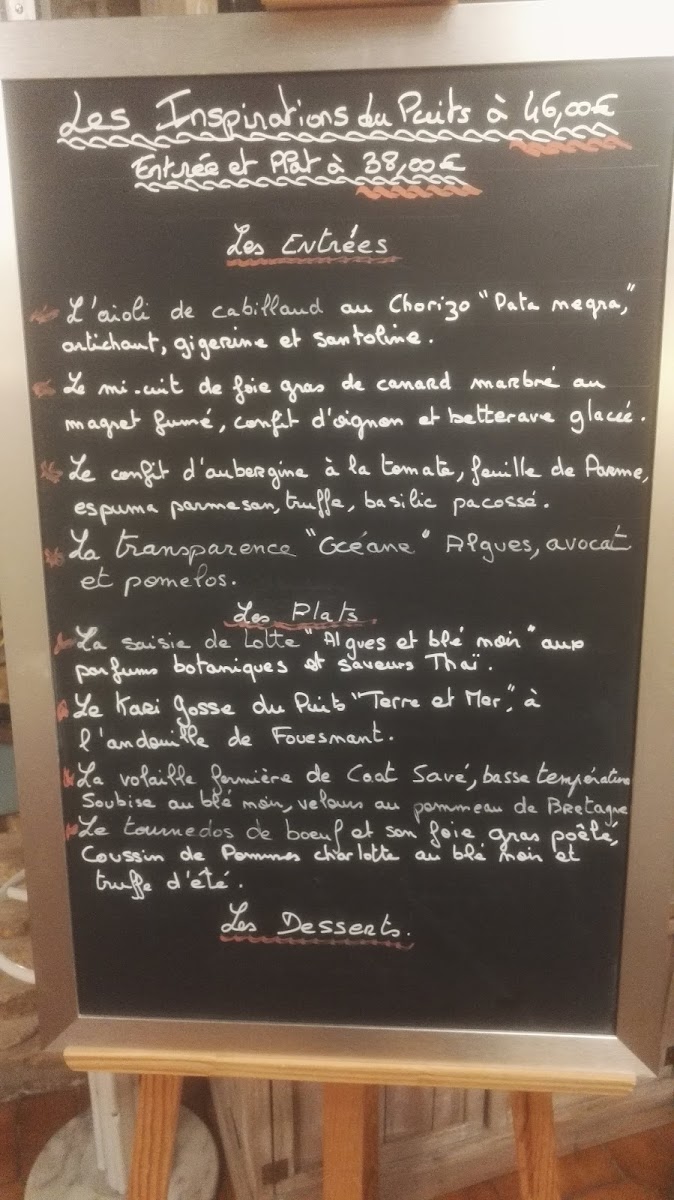 Les Inspirations du Puits à 46,00€
Entrée et Plat à 38,00€
Les Entrées
L'aïoli de cabillaud au Chorizo "Pata negra,"
artichaut, gigerine et santoline.
Le mi-cuit de foie gras de canard marbré au
magret fumé, confit d'oignon et betterave glacée.
Le confit d'aubergine à la tomate, feuille de Parme,
espuma parmesan, truffe, basilic pacossé.
La transparence "Océane" Algues, avocat
et pomelos.
Les Plats.
La saisie de Lotte "Algues et blé noir" aux
parfums botaniques et saveurs Thaï.
Le Kari Gosse du Puits "Terre et Mer", à
l'andouille de Fouesnant.
La volaille fermière de Coat Savé, basse température
Soubise au blé noir, velours au pommeau de Bretagne
Le tournedos de boeuf et son foie gras poêlé,
Coussin de Pommes charlotte au blé noir et
truffe d'été.
Les Desserts.